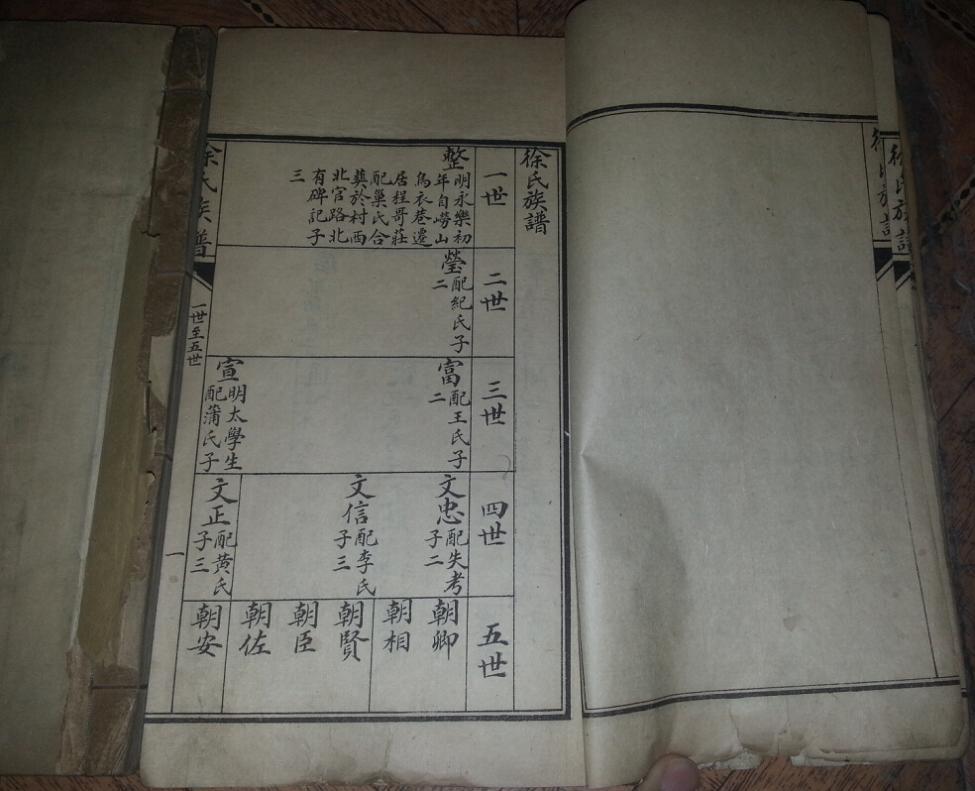 徐氏族譜
徐氏族譜
一世
整
明永樂初
年自嶗山
烏衣巷遷
居程哥莊
配巢氏合
葬於村西
北官路北
有碑記子
三
二世
瑩
配紀氏子
二
三世
富
配王氏子
二
宣
明太學生
配蒲氏子
四世
文忠
配失考
子二
文信
配李氏
子三
文正
配黃氏
子三
五世
朝卿
朝相
朝賢
朝臣
朝佐
朝安
徐氏族譜
一世至五世
一